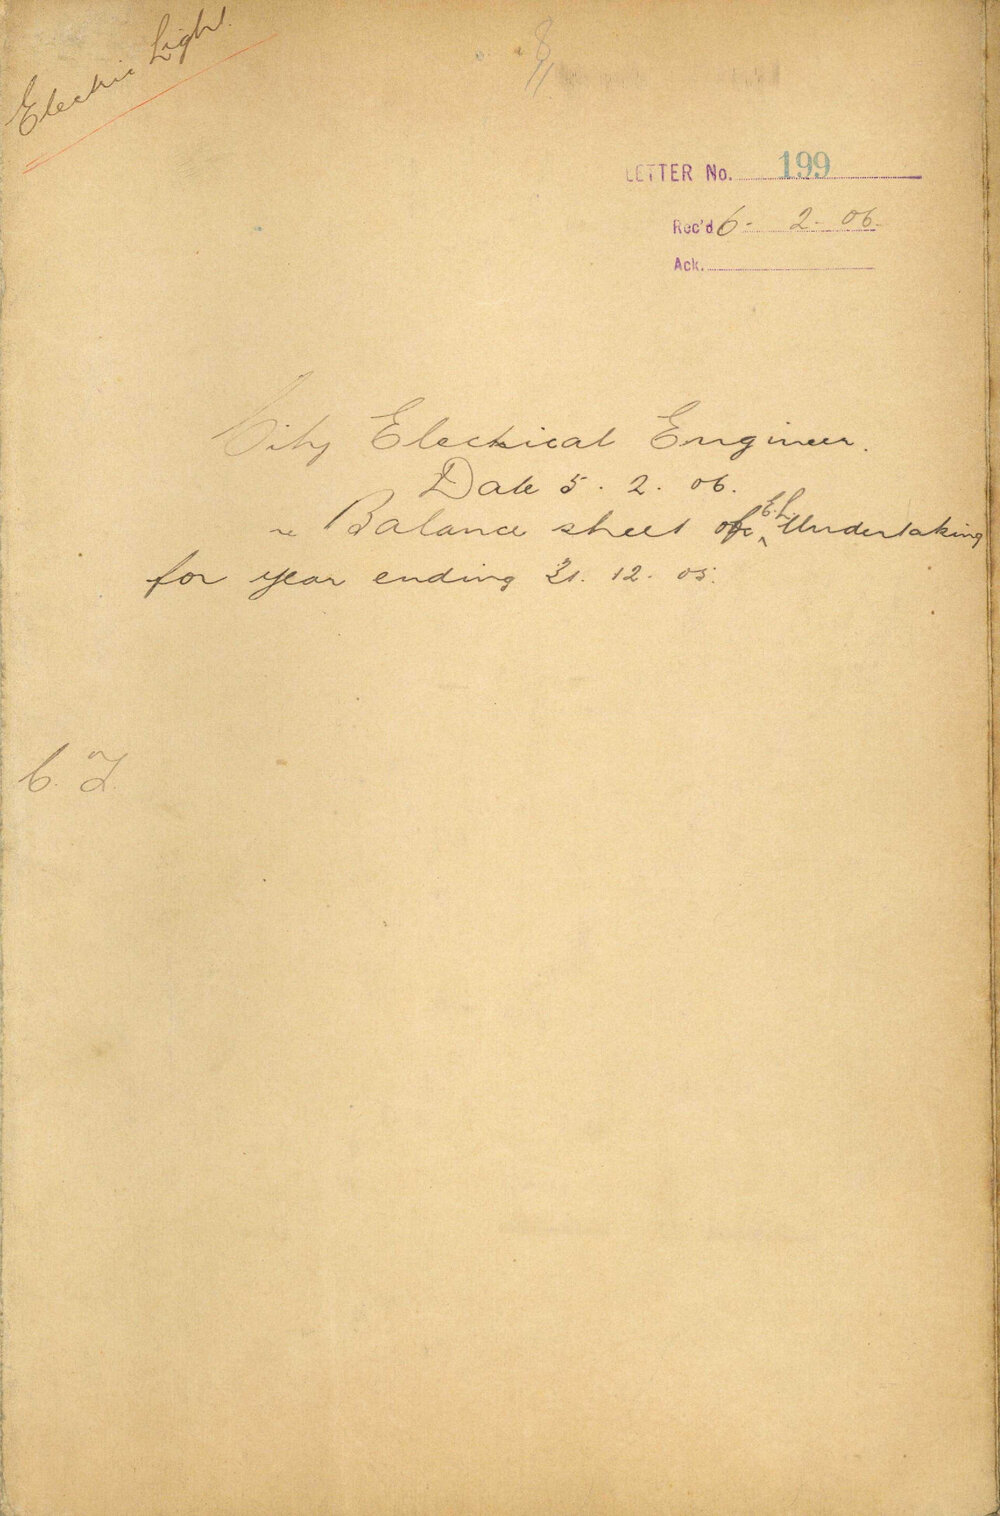 Electric Light.
8
11
LETTER No. 199
Rec'd 6 - 2 - 06.
Ack.
City Electrical Engineer.
Date 5. 2. 06.
re Balance sheet of E.L. Undertaking
for year ending 31. 12. 05.
C. T.